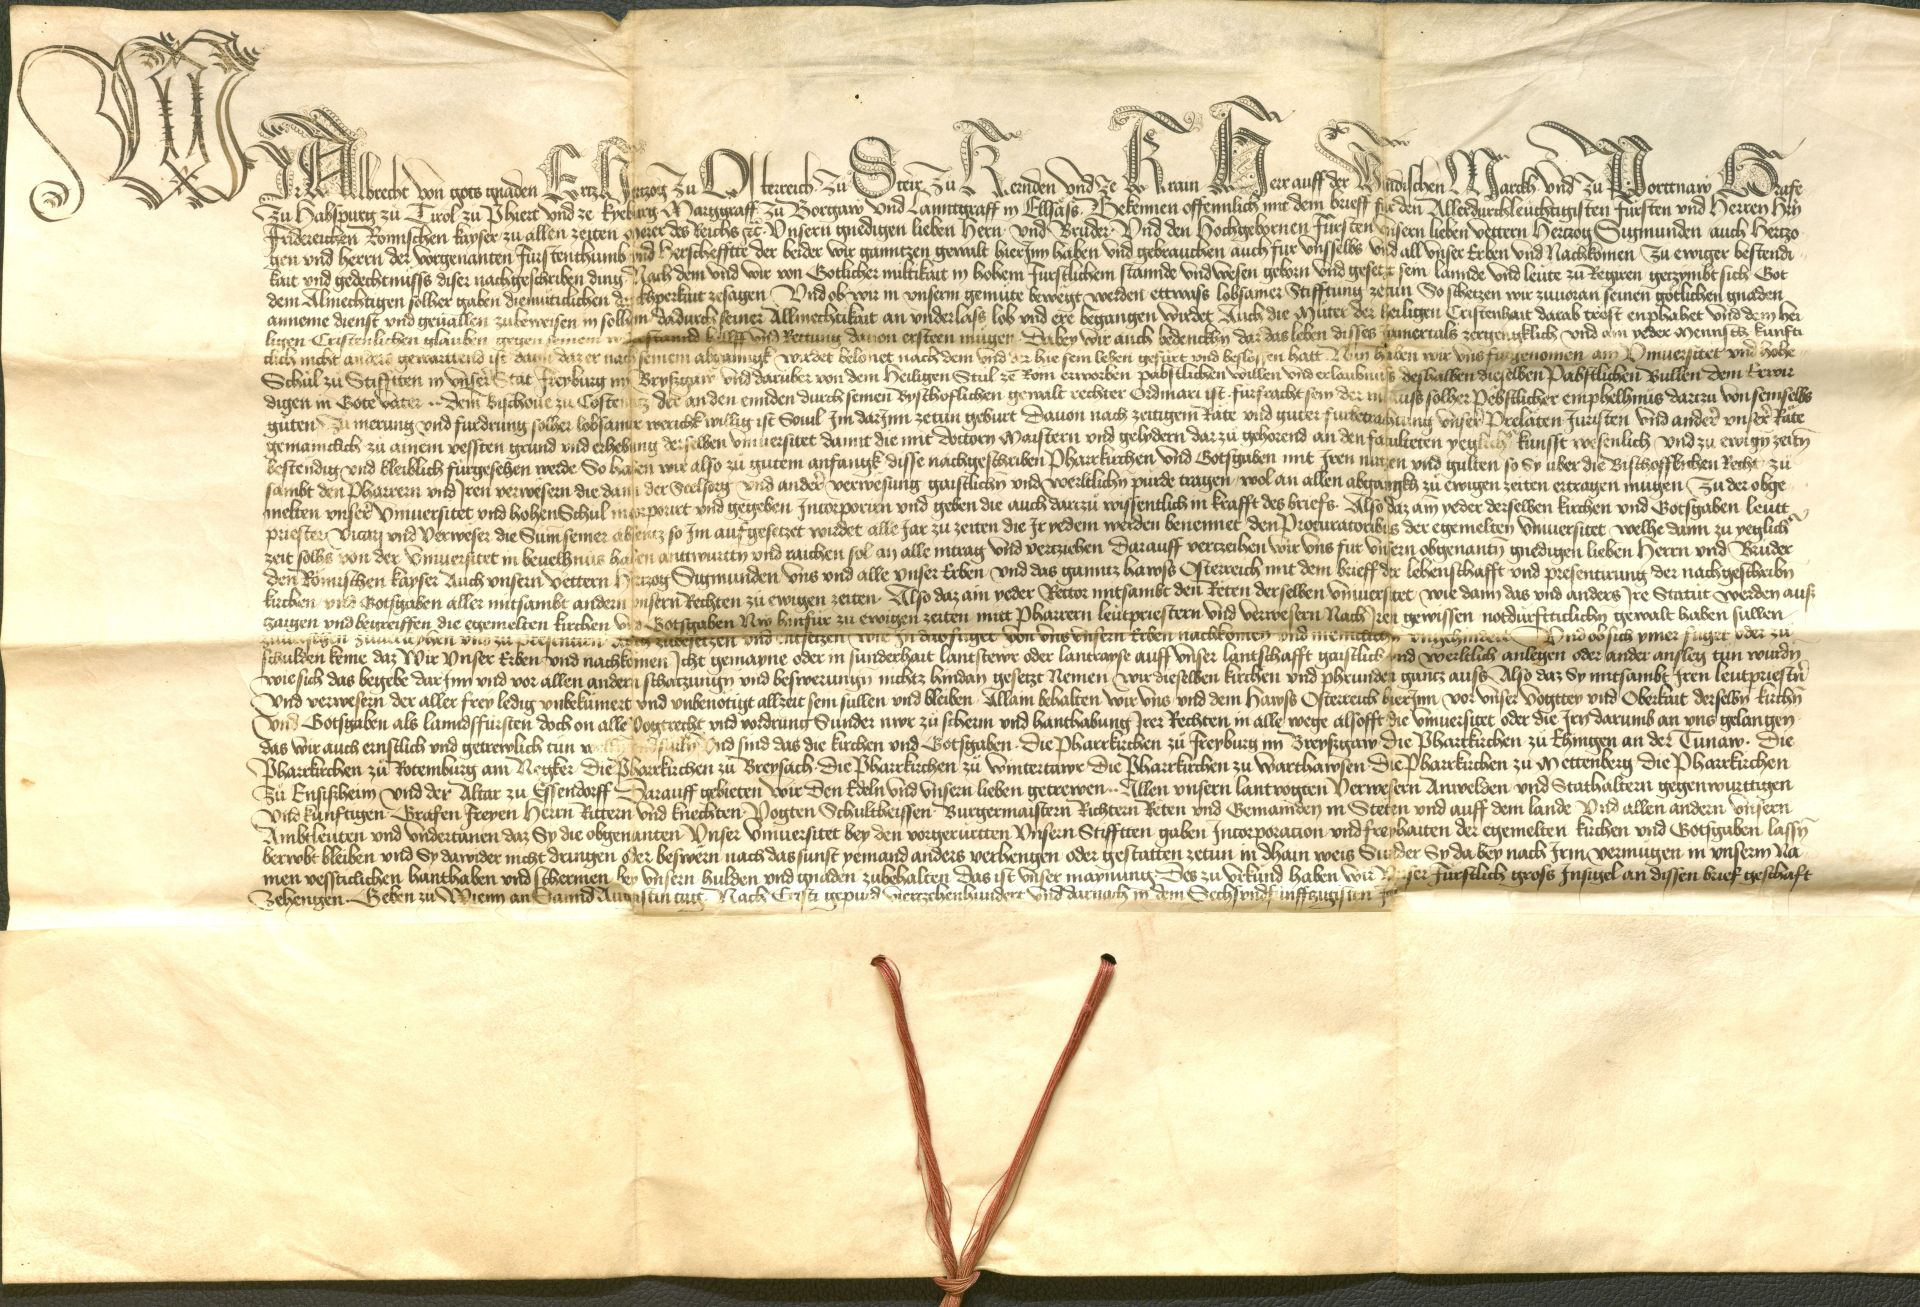 Wir Albrecht von gots gnaden Ertzhertzog zu Osterreich zu Steir zu Kernden und ze Krain Herr auff der Windischen March und zu Porttnaw Grafe
zu Habspurg zu Tirol zu Phiert und ze Kyburg Marggraff zu Borgaw und Lanntgraff in Ellsass Bekennen offennlich mit dem brieff fur den Allerdurchleuchtigisten fursten und Herren Hrn
Fridereichen Romischen kayser zu allen zeiten merer des Reichs etc Unsern gnedigen lieben Hern und Bruder Und den Hochgebornen Fursten unsern lieben vettern Hertzog Sigmunden auch Hertzo
gen und herrn der vorgenanten furstenthumb und Herschefftte der beider wir ganntzen gewalt hierInn haben und gebrauchen auch fur unsselbs und all unser Erben und Nachkomen Zu ewiger bestendi
kait und gedechtnusss diser nachgeschriben ding Nach dem und wir von Gotlicher miltikait in hohem furstlichem stannde und wesen geborn und gesetzt sein lannde und leute zu Regiren getzymbt sich Got
dem Almechtigen solher gaben diemuticlichen danckhperkait zesagen Und ob wir in unserm gemute bewegt werden ettwass lobsamer Stifftung zetun So schetzen wir zuvoran seinen gotlichen gnaden
anneme dienst und gevallen zubeweisen in solhem dadurch seiner Allmechtikait an underlass lob und ere begangen wirdet Auch die Muter der heiligen Cristenhait darab trost enphahet und dem Hei
ligen Cristenlichen glauben gegen seinem widerstannd hillff und Rettung davon ersteen mugen Dabey wir auch bedenckhn daz das leben disses Jamertals zergengklich und am yeder Mennsch kunfti
clich nicht anders gewarttend ist dann daz er nach seinem abganngk wirdet belonet nach dem und er hie sein leben gefurt und beslossen hatt Nun haben wir uns furgenomen ain Universitet und hohe
Schul zu Stifften in unser Stat Freyburg im Bryszgaw und daruber von dem Heiligen Stul ze Rom erworben pabstlichen willen und erlaubnuss deshalben dieselben Pabstlichen Bullen dem Erwir
digen in Gote vater dem Bischove zu Costentz der an den ennden durch seinen Bischoflichen gewalt rechter Ordinari ist furbracht sein der in auss solher Pebstlicher emphelhnus dartzu von seinselbs
guten zu merung und fuedrung solher lobsamer werickh willig ist Sovil Im darInn zetun geburt Davon nach zeitigem Rate und guter furbetrachtung unser Prelaten Juristen und ander unser Rate
gemainclich zu ainem vessten grund und erhebung derselben universitet damit die mit doctorn Maistern und gelydern dar zu gehorend an den faculteten yeglicher kunsst wesenlich und zu ewign zeitn
bestendig und kleiblich furgesehen werde So haben wir also zu gutem anfangk disse nachgeschriben Pharrkirchen und Gotsgaben mit Iren nutzen und gulten so Sy uber die Bischofflichen Recht zu
sambt den Pharrern und Iren verwesern die dann der Seelsorg und ander verwesung gaistlichn und werltlichn purde tragen wol an allen abgangkh zu ewigen zeiten ertragen mugen Zu der obge
melten unser Universitet und hohen Schul incorporiret und gegeben Incorporirn und geben die auch dartzu wissentlich in krafft des briefs Also daz ain yeder derselben kirchen und Gotsgaben leutt
priester Vicarj und Verweser die Sum seiner absentz so Im aufgesetzet wirdet alle Jar zu zeiten die Ir yedem werden benennet den Procuratoribus der egemelten Universitet welhe dann zu yeglicher
zeit solhs von der Universitet in bevelhnus haben antwurttn und raichen sol an alle intrag und vertziehen Darauff vertzeihen wir uns fur unsern obgenantn gnedigen lieben Herrn und Bruder
den Romischen kayser Auch unsern vettern Hertzog Sigmunden uns und alle unser Erben und das ganntz hawss Osterreich mit dem brieff der lehenschafft und presentirung der nachgeschribn
kirchen und Gotsgaben aller mitsambt andern unsern Rechten zu ewigen zeiten Also daz ain yeder Rettor mitsambt den Reten derselben universitet wie dann das und anders Ire Statut werden aus
tzaigen und begreiffen die egemelten kirchen und Gotsgaben Nw hinfur zu ewigen zeiten mitt Pharrern leutpriestern und verwesern Nach Iren gewissen notdurftticlichn gewalt haben sullen
zubesetzen und entsetzen von uns unsern Erben nachkomen und meniclich ungehindert Und ob sich ymer fuget oder zu
schulden keme daz Wir Unser Erben und nachkomen Icht gemayne oder in sunderhait lantstewr oder lantrayse auff unser lantschafft gaistlich und werltlich anlegen oder ander ansleg tun wurdn
wie sich das begebe darInn und vor allen andern schatzungn und beswerungn nichtz hindan gesetzt Nemen wir dieselben kirchen und phrunden gantz auss Also daz Sy mitsambt Iren leutpriestern
und verwesern der aller frey ledig unbekumert und unbenotigt allzeit sein sullen und bleiben Allain behalten wir uns und dem Hawss Osterreich hierInn vor unser Vogttey und Oberkait derselbn kirchn
und Gotsgaben als lanndsfursten doch on alle Vogtrecht und vordrung Sunder nwr zu scherm und hanthabung Irer Rechten in alle wege alsofft die universitet oder die Irn darumb an uns gelangen
das wir auch ernstlich und getrewlich tun wellen und sulln Und sind das die kirchen und Gotsgaben Die Pharrkirchen zu Freyburg im Breyszgaw die Pharrkirchen zu Ehingen an der Tunaw Die
Pharrkirchen zu Rotemburg am Negker Die Pharrkirchen zu Breysach Die Pharrkirchen zu wintertawr Die Pharrkirchen zu warthawsen Die Pharrkirchen zu Mettenberg Die Pharrkirchen
zu Ensiszheim und der Altar zu Essendorff Darauff gebieten wir Den Edeln und unsern lieben getrewen Allen unsern lantvogten Verwesern Anwelden und Stathaltern gegenwurttigen
und kunftigen Grafen Freyen Herrn Rittern und knechten Vogten Schultheissen Burgermaistern Richtern Reten und Gemainden in Steten und auff dem lande Und allen andern unsern
Ambtleuten und undertanen daz Sy die obgenanten Unser Universitet bey den vorgerurtten Unsern Stifften gaben Incorporacion und freyhaiten der egemelten kirchen und Gotsgaben lassn
beruebt bleiben und Sy dawider nicht dringen oder beswern nach das sunst yemand anders verhengen oder gestatten zetun in dhain weis Sunder Sy da bey nach Irm vermugen in unserm Na
men vessticlichen hanthaben und schermen bey unsern hulden und gnaden zubehalten Das ist unser maynung Des zu urkund haben wir Unser furstlich gross Insigel an dissen brief geschaft
zehengen Geben zu Wienn an Sannd Augustin tage Nach Cristi gepurd viertzehenhundert und darnach in dem Sechsundfunfftzigisten Jare